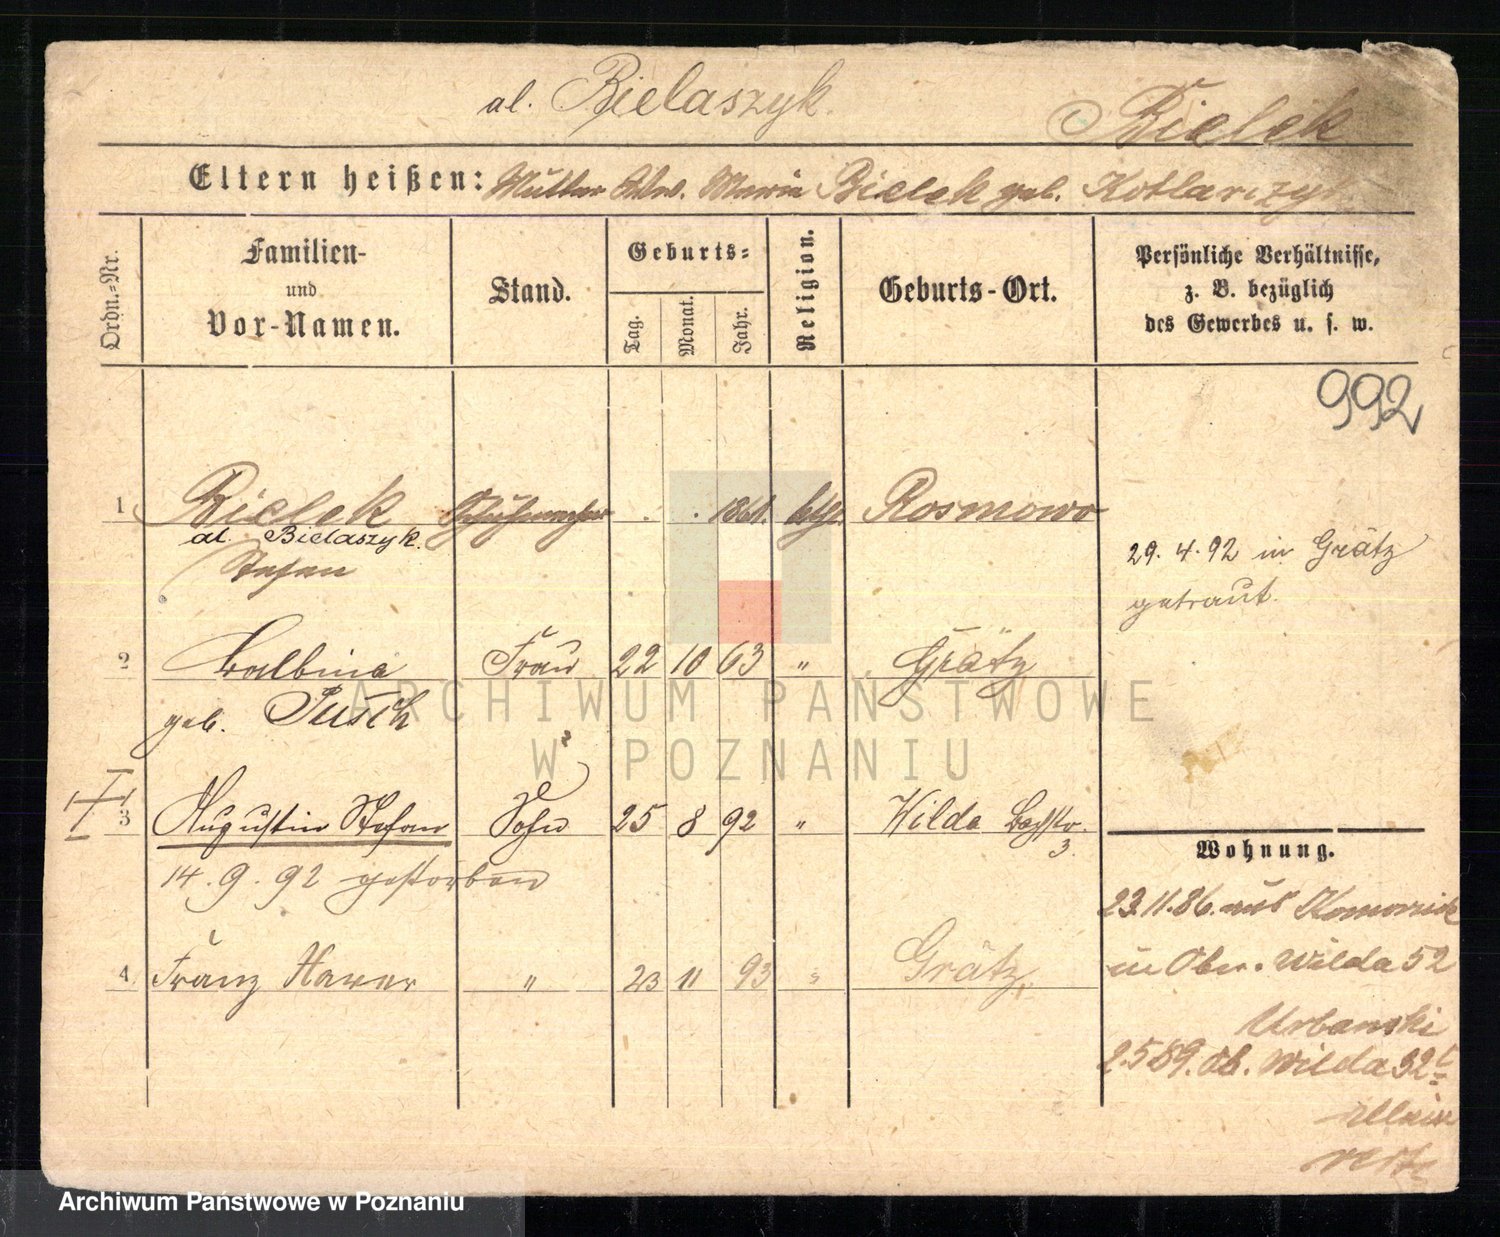 al. Bielaszyk.
Bielek
Eltern heißen: Mutter Wtw. Maria Bielek geb. Kotlarczyk
Ordn.-Nr.
Familien-
und
Vor-Namen.
Stand.
Geburts-
Tag.
Monat.
Jahr.
Religion.
Geburts-Ort.
Persönliche Verhältnisse,
z. B. bezüglich
des Gewerbes u. s. w.
992
1 Bielek Schuhmacher . . 1861. ktl. Rosnowo
al. Bielaszyk.
Stefan
29. 4. 92 in Grätz
getraut.
2 Balbina Frau 22 10 63 " Grätz
geb. Pusch
3 Augustin Stefan Sohn 25 8 92 " Wilda Bachstr.
3.
14. 9. 92 gestorben
Wohnung.
23.11.86. aus Komornik
in Ober. Wilda 52
4 Franz Xaver " 23 11 93 " Grätz
Urbanski
2.5 89. Ob. Wilda 32
ARCHIWUM PAŃSTWOWE
W POZNANIU
Archiwum Państwowe w Poznaniu